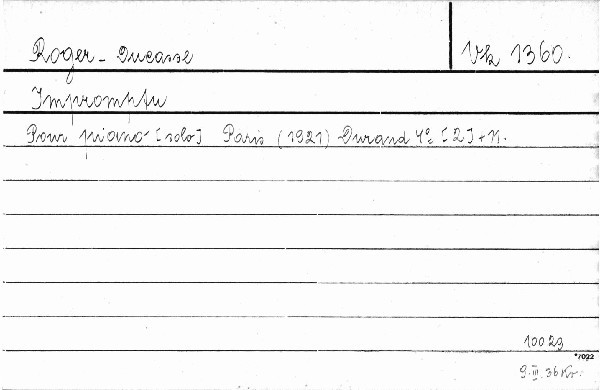 Roger-Ducasse
Vk 1360.
Impromptu
Pour piano [solo] Paris (1921) Durand 4º [2]+11.
10029
*7092
9.II.36 Kr.